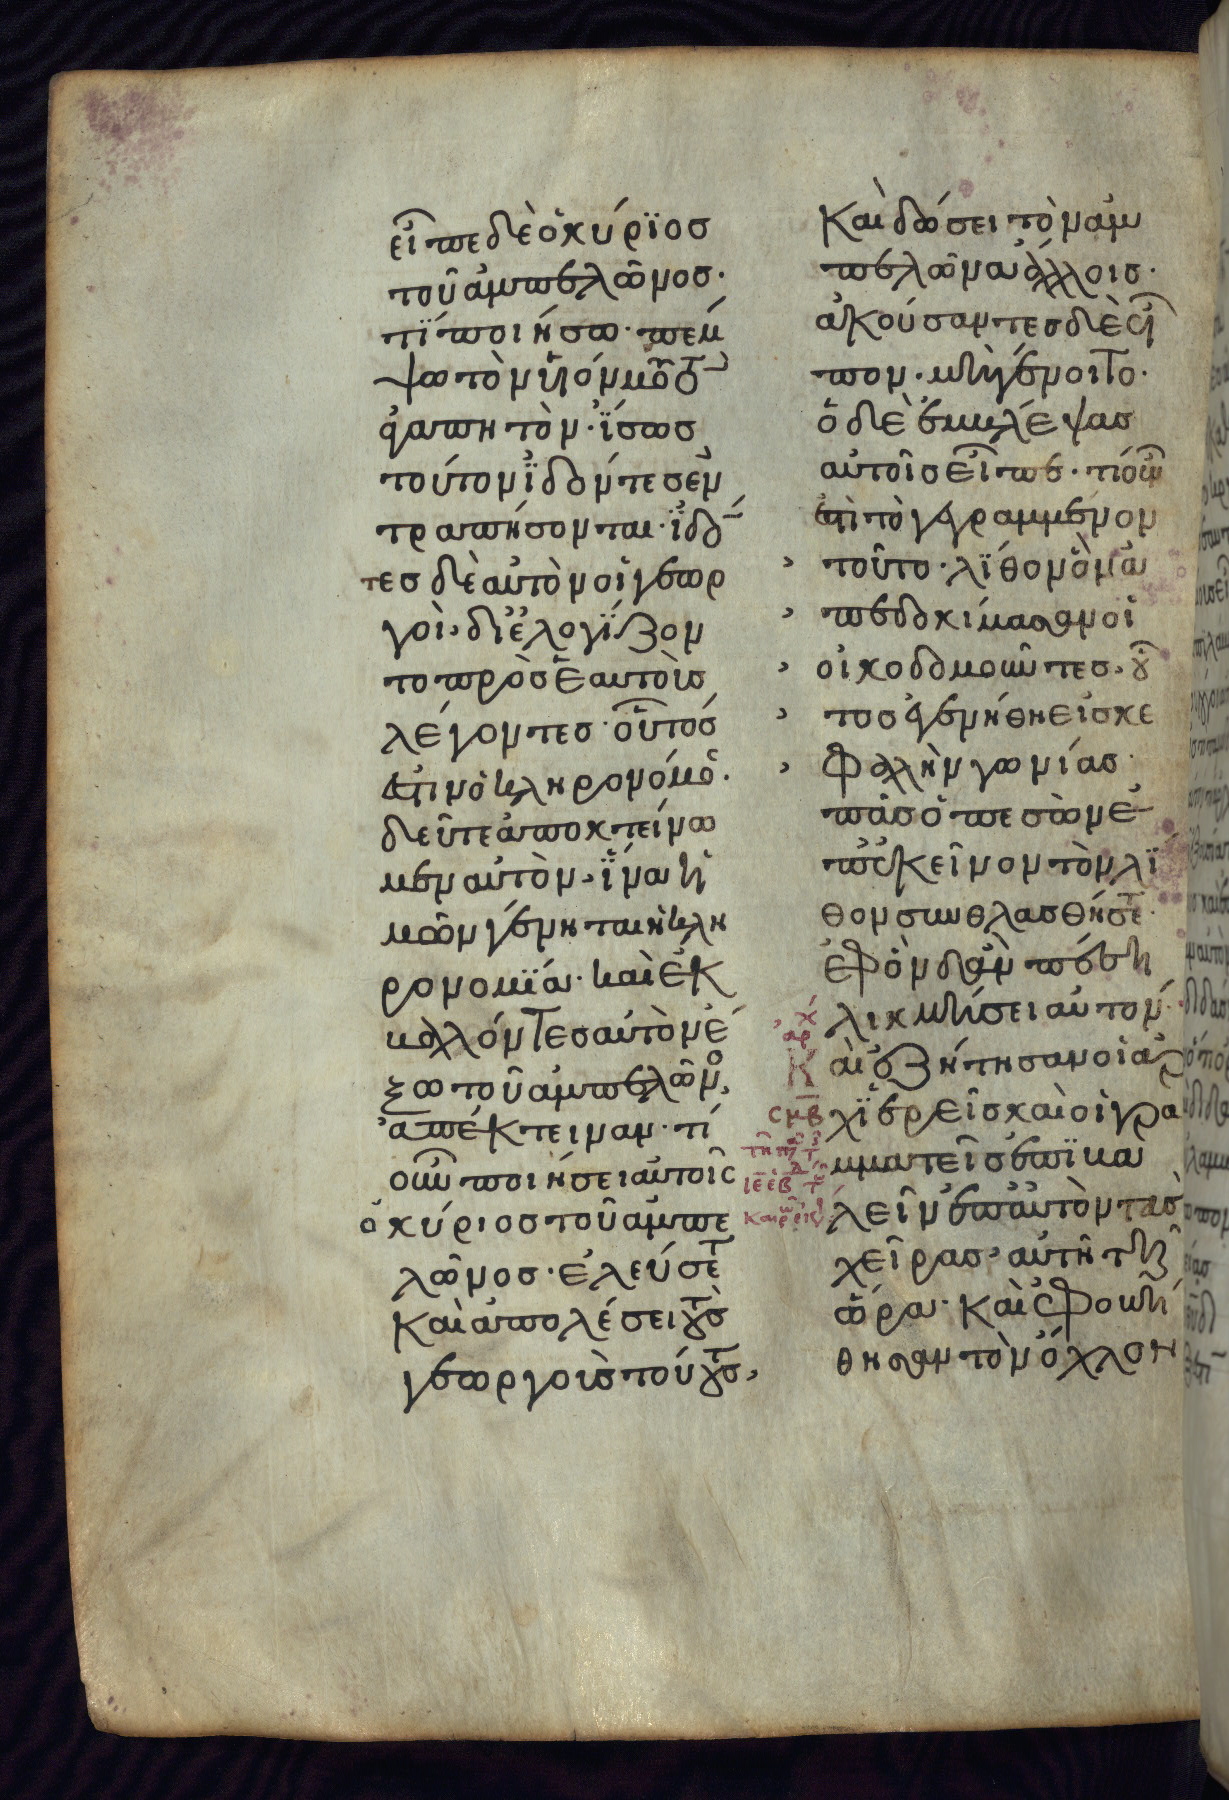 εἶπε δὲ ὁ κύρϊοσ
τοῦ ἀμπελῶνοσ·
τί ποιήσω· πέμ
ψω τὸν υἱόν μου τ̀
ἀγαπητόν· ἴσωσ
τοῦτον ϊδόντεσ ἐν
τραπήσονται· ϊδό
τεσ δὲ αὐτὸν οἱ γεωρ
γοὶ, διελογίζον
το πρὸσ ἑαυτοὺσ
λέγοντεσ· οὗτόσ
ἐστιν ὁ κληρονόμος·
δεῦτε ἀποκτείνω
μεν αὐτόν· ἵνα ἡ
μῶν γένηται ἡ κλη
ρονομία· καὶ ἐκ
βαλόντεσ αὐτὸν ἔ
ξω τοῦ ἀμπελῶνο,
ἀπέκτειναν· τί
οὖν ποιήσει αὐτοῖς
ὁ κύριοσ τοῦ ἀμπε
λῶνοσ· ἐλεύσετ
καὶ ἀπολέσει τοὺσ
γεωργοὺσ τούτουσ,
Καὶ δώσει τὸν ἀμ
πελῶνα ἄλλοισ·
ἀκούσαντεσ δὲ εἶ
πον· μὴ γένοιτο·
ὁ δὲ ἐμβλέψασ
αὐτοῖσ εἶπε· τί οὖν
ἐστὶ τὸ γεγραμμένον
τοῦτο· λίθον ὃν ἀ
πεδοκίμασαν οἱ
οἰκοδομοῦντεσ· οὗ
τοσ ἐγενήθη εἰσ κε
φαλὴν γωνίασ·
πᾶσ ὁ πεσὼν ἐ
π' ἐκεῖνον τὸν λί
θον συνθλασθήσετ·
ἐφ' ὃν δ' ἂν πέσῃ
λικμήσει αὐτόν·
Καὶ ἐζήτησαν οἱ ἀρ
χϊερεῖσ καὶ οἱ γρα
μματεῖσ ἐπιβα
λεῖν ἐπ' αὐτὸν τὰσ
χεῖρασ, αὐτῇ τῇ
ὥρα· καὶ ἐφοβή
θησαν τὸν ὄχλον
αρχ
ϲμβ